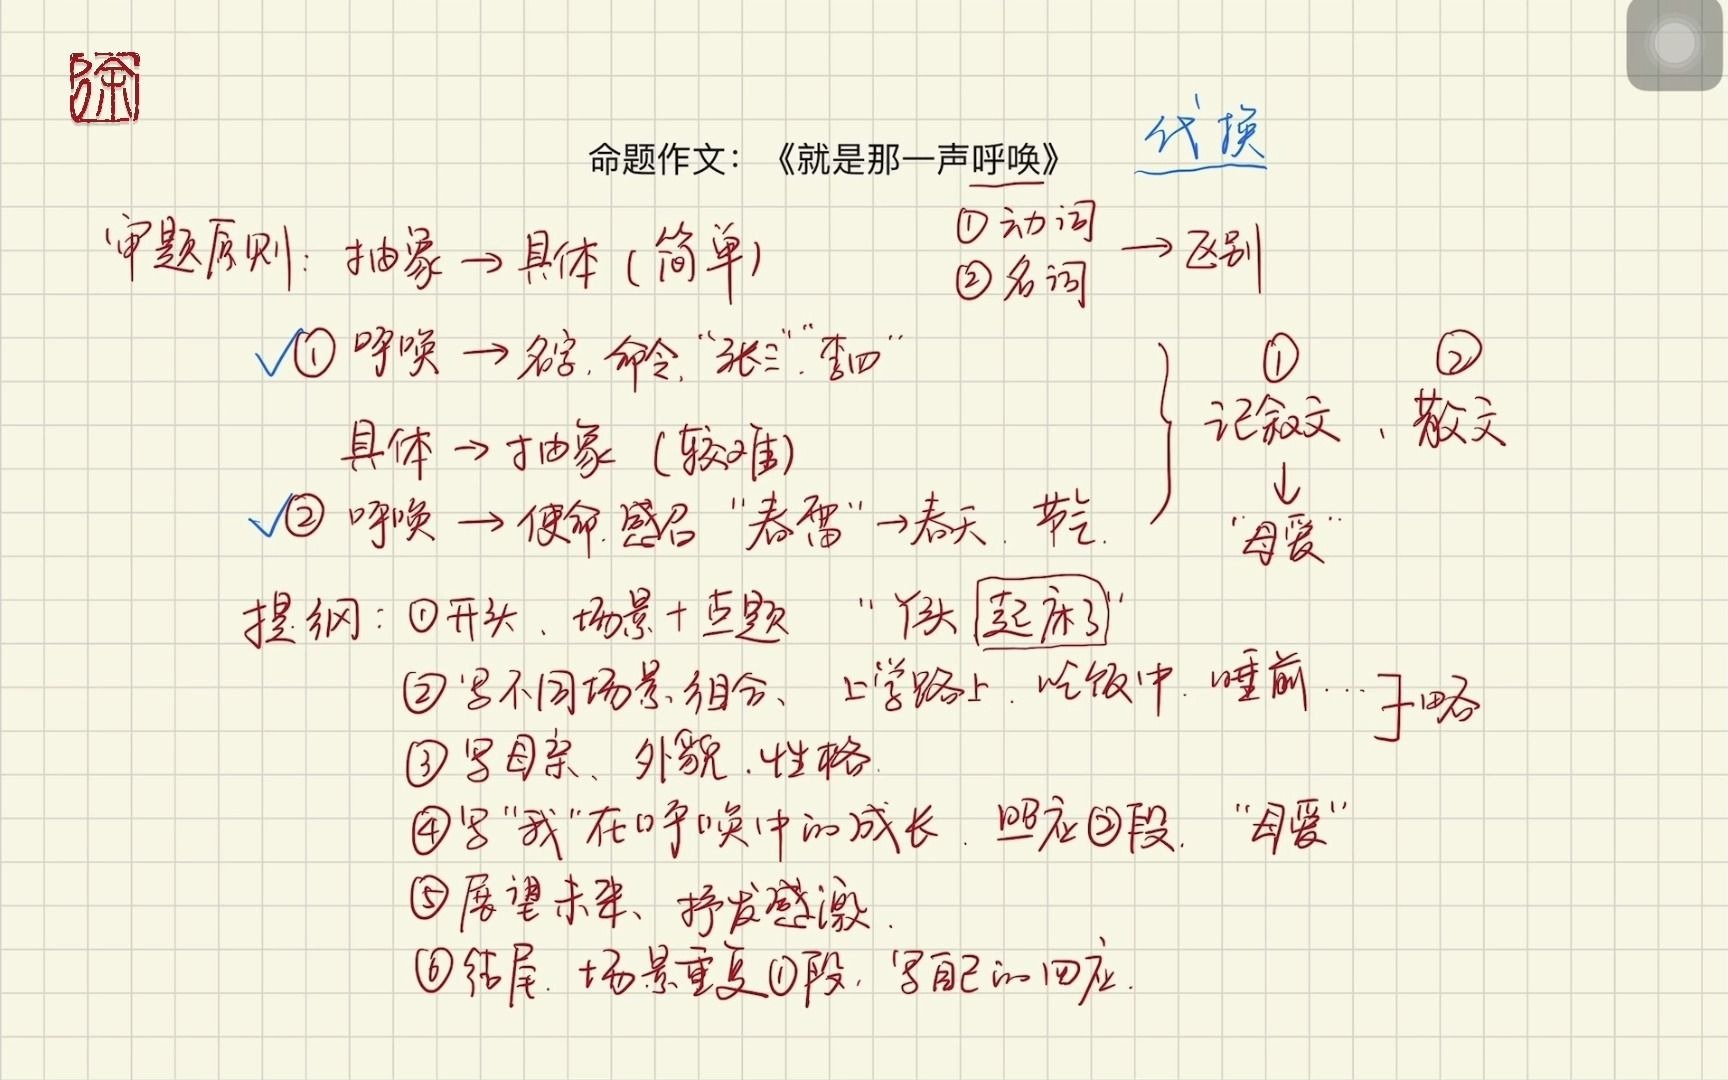 徐
代换
命题作文：《就是那一声呼唤》
①动词
审题原则：抽象→具体（简单）
→区别
②名词
①呼唤→名字、命令、“张三”、“李四”
① ②
记叙文、散文
具体→抽象（较难）
↓
②呼唤→使命、感召 “春雷”→春天、节气.
“母爱”
提纲：①开头、场景+点题 “丫头起床了”
②写不同场景组合、上学路上、吃饭中、睡前…】略
③写母亲、外貌、性格.
④写“我”在呼唤中的成长. 照应②段. “母爱”
⑤展望未来、抒发感激.
⑥结尾. 场景重复①段，写自己的回应.